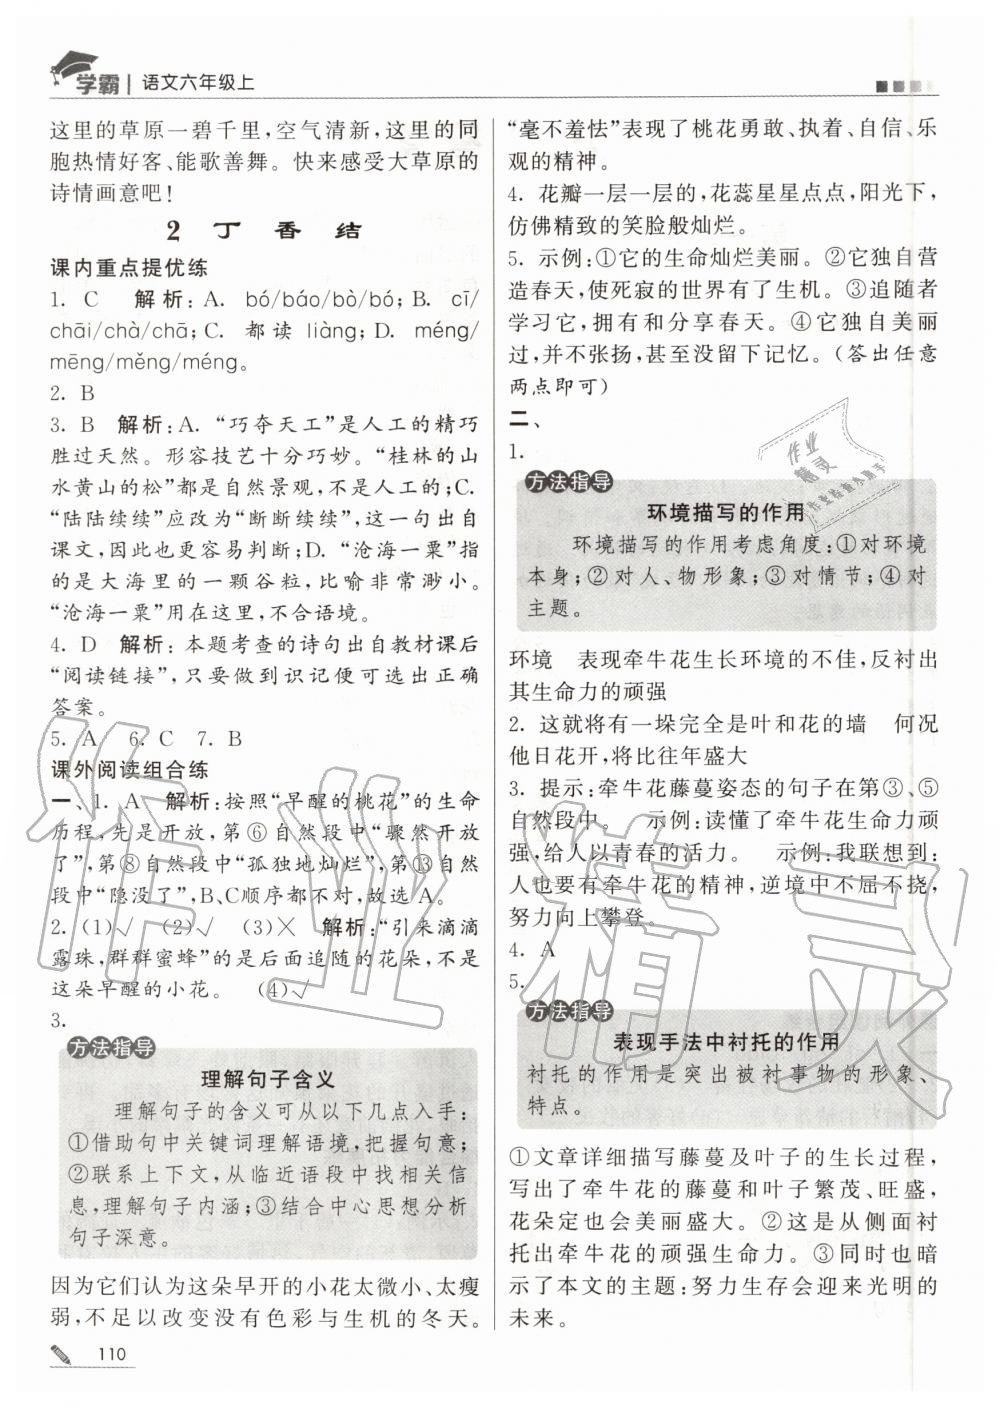 学霸 | 语文六年级上
这里的草原一碧千里,空气清新,这里的同
胞热情好客、能歌善舞。快来感受大草原的
诗情画意吧!
2 丁香结
课内重点提优练
1. C 解析:A. bó/báo/bò/bó; B. cī/
chāi/chà/chā; C. 都读 liàng; D. méng/
mēng/měng/méng。
2. B
3. B 解析:A.“巧夺天工”是人工的精巧
胜过天然。形容技艺十分巧妙。“桂林的山
水黄山的松”都是自然景观,不是人工的;C.
“陆陆续续”应改为“断断续续”,这一句出自
课文,因此也更容易判断;D.“沧海一粟”指
的是大海里的一颗谷粒,比喻非常渺小。
“沧海一粟”用在这里,不合语境。
4. D 解析:本题考查的诗句出自教材课后
“阅读链接”,只要做到识记便可选出正确
答案。
5. A 6. C 7. B
课外阅读组合练
一、1. A 解析:按照“早醒的桃花”的生命
历程,先是开放,第⑥自然段中“骤然开放
了”,第⑧自然段中“孤独地灿烂”,第⑬自然
段中“隐没了”,B、C顺序都不对,故选A。
2. (1)√ (2)√ (3)╳ 解析:“引来滴滴
露珠,群群蜜蜂”的是后面追随的花朵,不是
这朵早醒的小花。 (4)√
3.
方法指导
理解句子含义
理解句子的含义可从以下几点入手:
①借助句中关键词理解语境,把握句意;
②联系上下文,从临近语段中找到相关信
息,理解句子内涵;③结合中心思想分析
句子深意。
因为它们认为这朵早开的小花太微小、太瘦
弱,不足以改变没有色彩与生机的冬天。
“毫不羞怯”表现了桃花勇敢、执着、自信、乐
观的精神。
4. 花瓣一层一层的,花蕊星星点点,阳光下,
仿佛精致的笑脸般灿烂。
5. 示例:①它的生命灿烂美丽。②它独自营
造春天,使死寂的世界有了生机。③追随者
学习它,拥有和分享春天。④它独自美丽
过,并不张扬,甚至没留下记忆。(答出任意
两点即可)
二、
1.
方法指导
环境描写的作用
环境描写的作用考虑角度:①对环境
本身;②对人、物形象;③对情节;④对
主题。
环境 表现牵牛花生长环境的不佳,反衬出
其生命力的顽强
2. 这就将有一垛完全是叶和花的墙 何况
他日花开,将比往年盛大
3. 提示:牵牛花藤蔓姿态的句子在第③、⑤
自然段中。 示例:读懂了牵牛花生命力顽
强,给人以青春的活力。 示例:我联想到:
人也要有牵牛花的精神,逆境中不屈不挠,
努力向上攀登。
4. A
5.
方法指导
表现手法中衬托的作用
衬托的作用是突出被衬事物的形象、
特点。
①文章详细描写藤蔓及叶子的生长过程,
写出了牵牛花的藤蔓和叶子繁茂、旺盛,
花朵定也会美丽盛大。②这是从侧面衬
托出牵牛花的顽强生命力。③同时也暗
示了本文的主题:努力生存会迎来光明的
未来。
110
作业精灵
作业
精灵